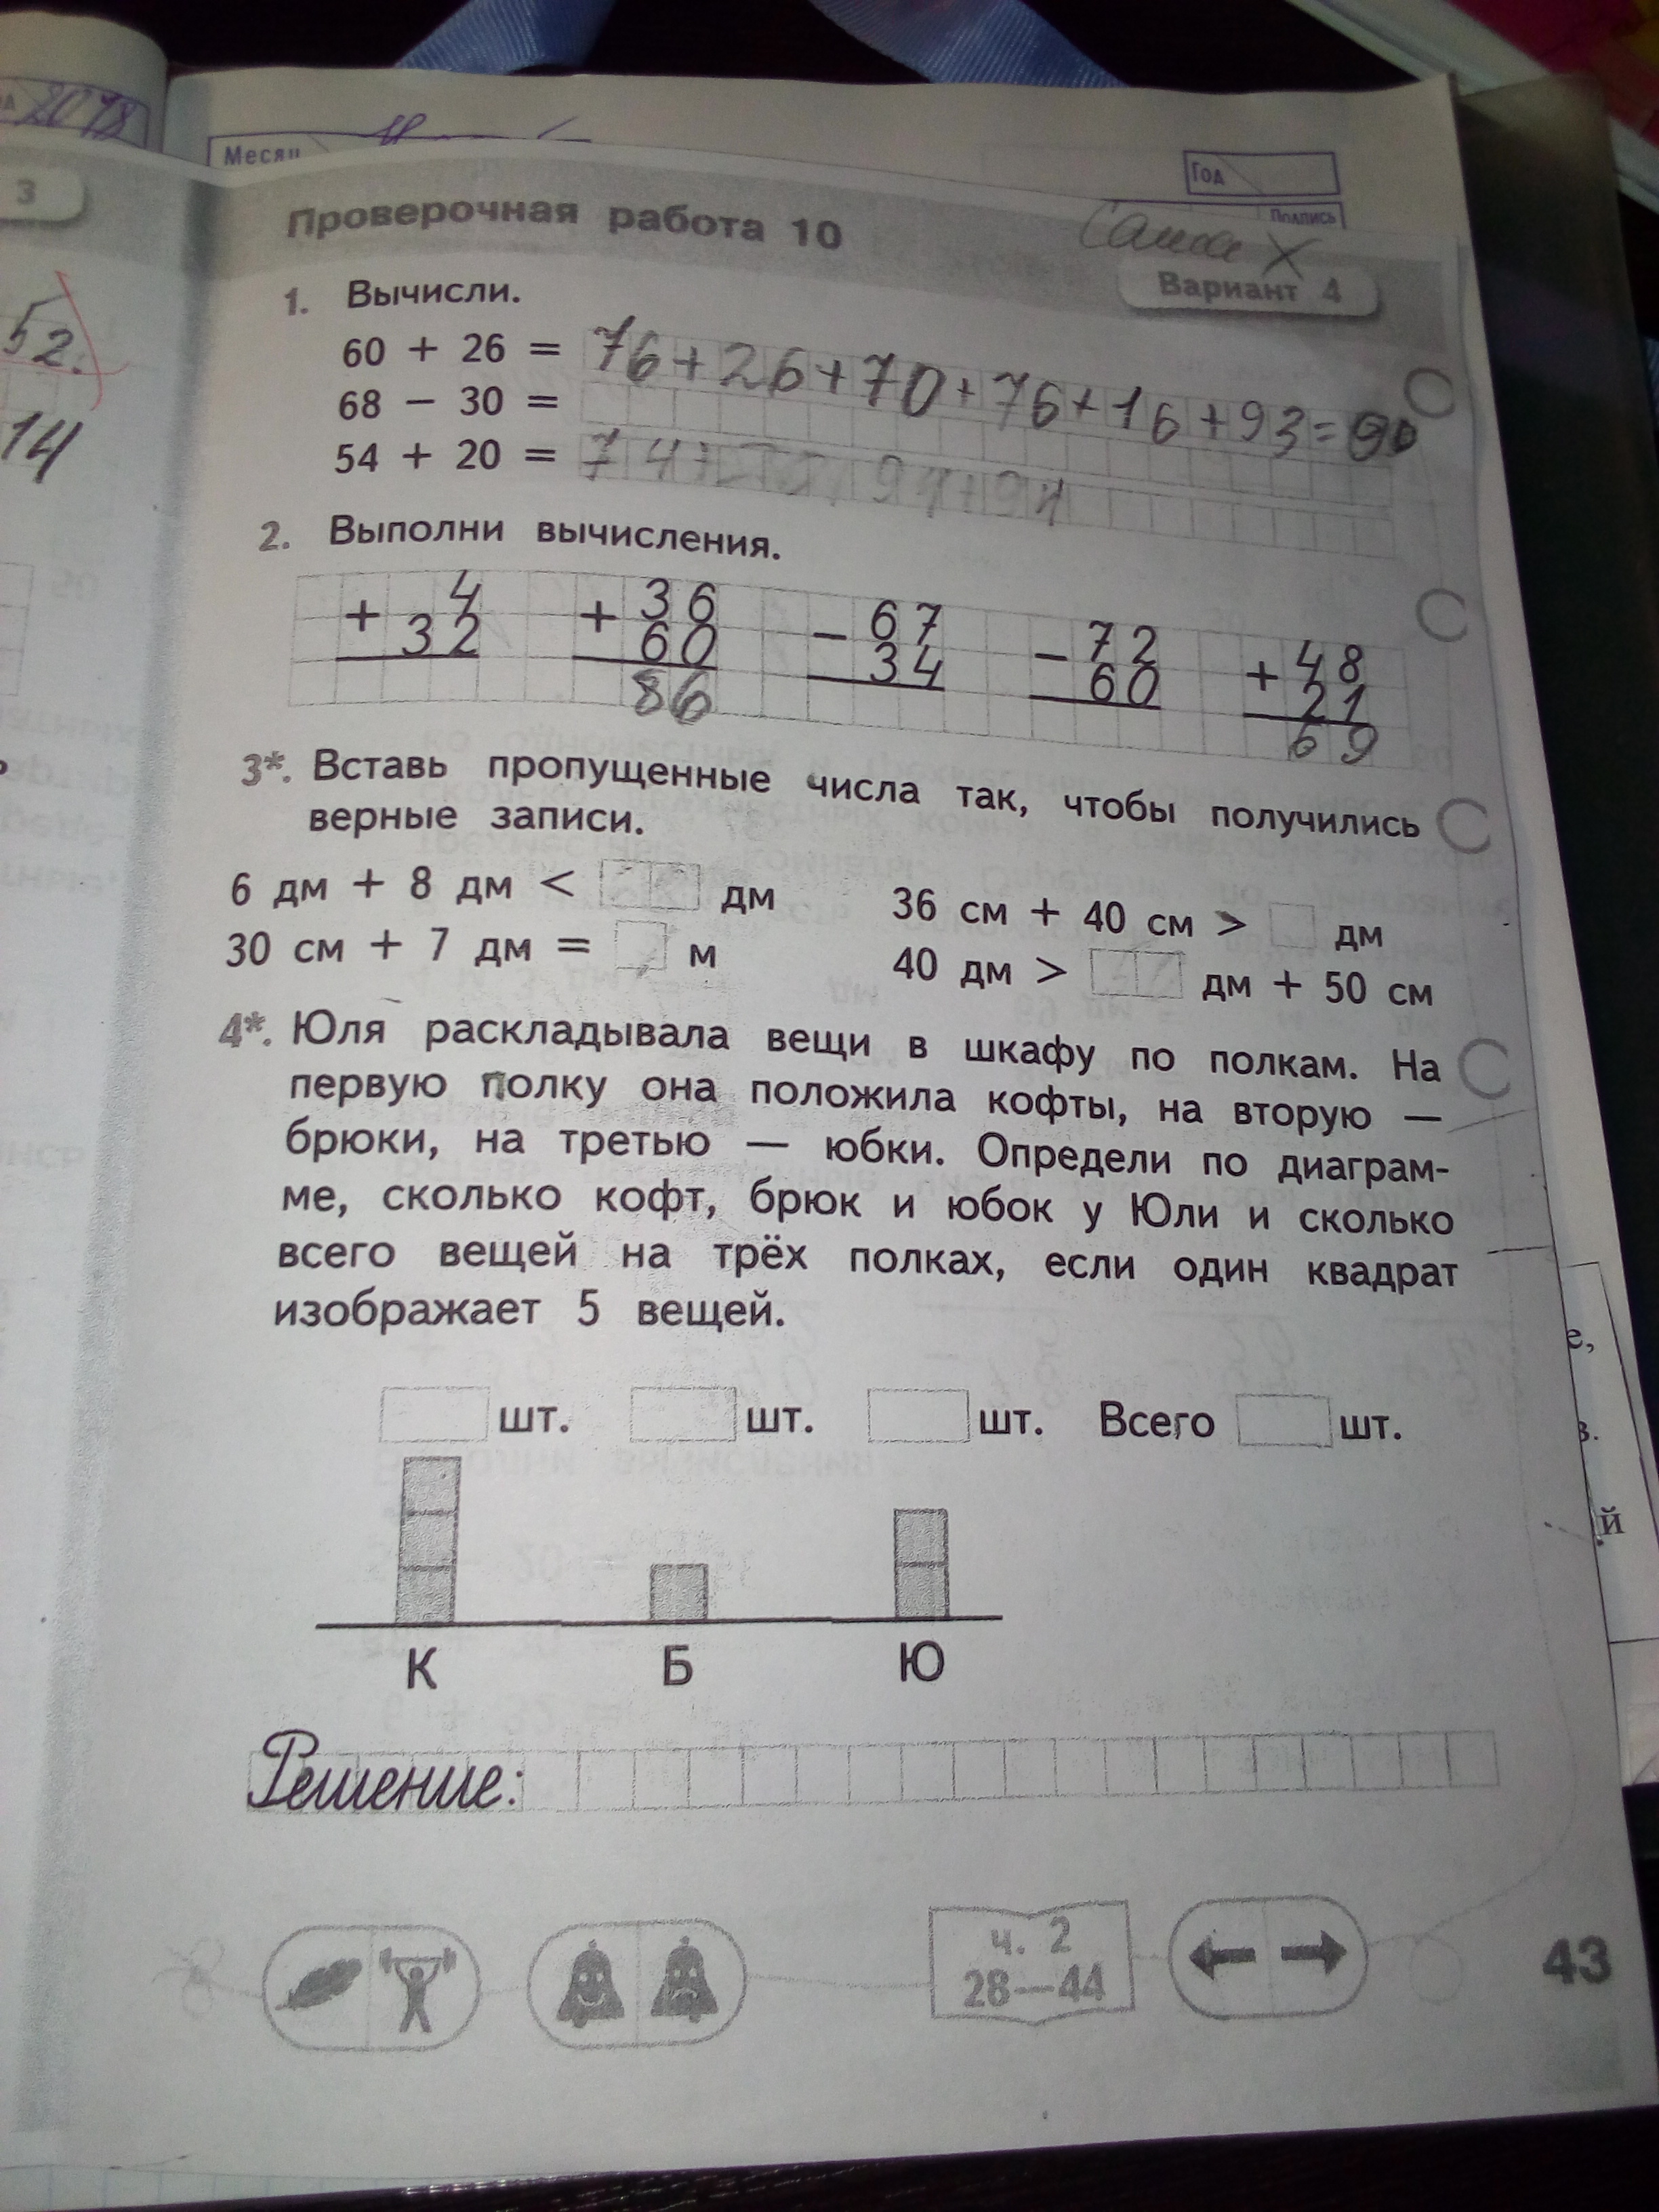 2018
Месяц
Год
Подпись
3
Проверочная работа 10
Саша Х
Вариант 4
52.
14
1. Вычисли.
60 + 26 = 76+26+70+76+16+93=90
68 − 30 =
54 + 20 = 74+
2. Выполни вычисления.
+ 4 + 36 − 67 − 72 + 48
32 60 34 60 21
86 69
3*. Вставь пропущенные числа так, чтобы получились
верные записи.
6 дм + 8 дм < дм 36 см + 40 см > дм
30 см + 7 дм = м 40 дм > дм + 50 см
4*. Юля раскладывала вещи в шкафу по полкам. На
первую полку она положила кофты, на вторую —
брюки, на третью — юбки. Определи по диаграм-
ме, сколько кофт, брюк и юбок у Юли и сколько
всего вещей на трёх полках, если один квадрат
изображает 5 вещей.
шт. шт. шт. Всего шт.
К Б Ю
Решение:
ч. 2
28—44
43
е,
в.
й